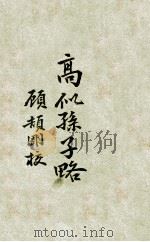 高似孫子略
顧頡剛校
www.duxiu.com